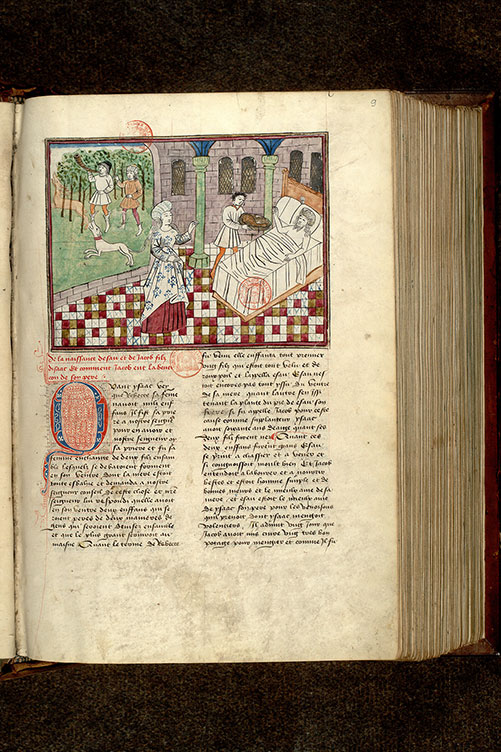 9
De la naissance desau et de Jacob filz
dysaac Et comment Jacob eut la benei
con de son pere
Quant ysaac vey
que Rebecce sa feme
nauoit nulz enf
aus il fist sa prie
re a nostre seigneur
pour en auoir et
nostre seigneur oy
sa priere et fu sa
femme enchainte de deux filz ensem
ble lesquelz se debatoient forment
en son ventre dont la mere estoit
toute esbahie et demanda a nostre
seigneur conseil de ceste chose et nre
seigneur luy respondi quelle auoit
en son ventre deux enffans qui se
roient peres de deux manieres de
gens qui seroient diuisez ensamble
et que le plus grant seruiroit au
maisne Quant le terme de Rebecce
fu venu elle enffanta tout premier
vng filz qui estoit tout velu et de
rouge poil et lappella esau Esau nes
toit encores pas tout yssu du ventre
de sa mere quant lautre sen issi
tenant la plante du pie de esau son
frere si fu appelle Jacob pour ceste
cause comme supplanteur ysaac
auoit soixante ans deaige quant ses
deux filz furent nez Quant ces
deux enffans furent grans Esau
se prist a chasser et a vener et
si congnoissoit moult bien Et Jacob
entendoit a labourer et a nourrir
bestes et estoit homme simple et de
bonnes meurs et le mieulx ame de sa
mere et esau estoit le mieulx ame
de ysaac son pere pour les venoisons
quil prenoit dont ysaac mengoit
voulentiers Il aduint vng jour que
Jacob auoit mis cuire vng tres bon
potage pour menger et comme il fu